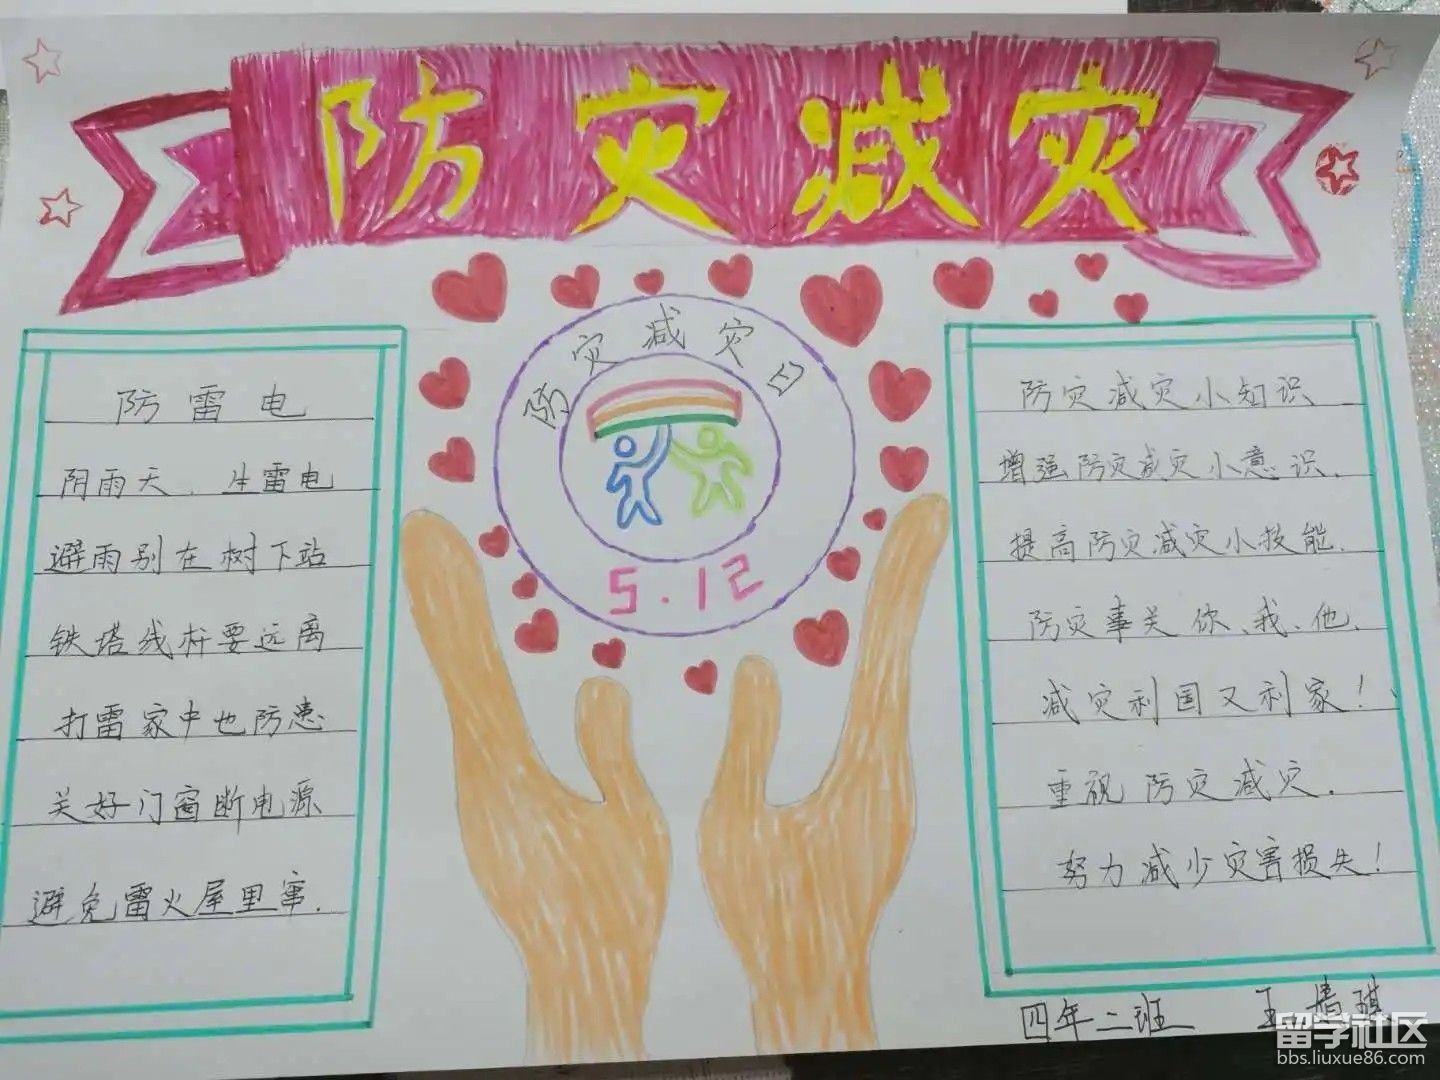 防灾减灾
防灾减灾日
5.12
防雷电
阴雨天、生雷电
避雨别在树下站
铁塔线杆要远离
打雷家中也防患
关好门窗断电源
避免雷火屋里窜.
防灾减灾小知识
增强防灾减灾小意识.
提高防灾减灾小技能.
防灾事关你、我、他、
减灾利国又利家!
重视防灾减灾.
努力减少灾害损失!
四年二班 王 琪
留学社区
bbs.liuxue86.com